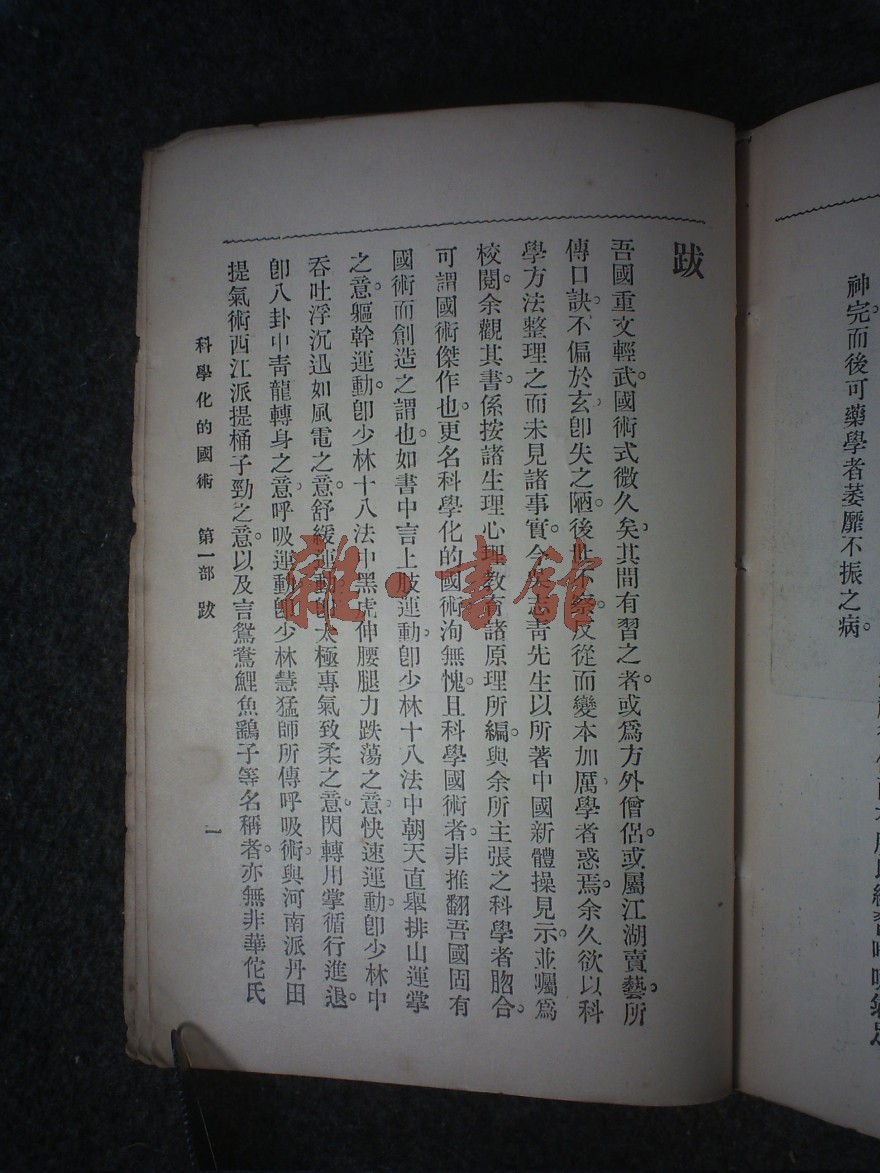 神完。而後可藥學者萎靡不振之病。
跋
吾國重文輕武。國術式微久矣。其間有習之者。或爲方外僧侶。或屬江湖賣藝。所
傳口訣。不偏於玄。卽失之陋。後世不察。反從而變本加厲。學者惑焉。余久欲以科
學方法整理之。而未見諸事實。今吳志靑先生以所著中國新體操見示。並囑爲
校閱。余觀其書。係按諸生理心理教育諸原理所編。與余所主張之科學者脗合。
可謂國術傑作也。更名科學化的國術洵無愧。且科學國術者。非推翻吾國固有
國術而創造之謂也。如書中言上肢運動。卽少林十八法中朝天直舉排山運掌
之意。軀幹運動。卽少林十八法中黑虎伸腰腿力跌蕩之意。快速運動。卽少林中
吞吐浮沉迅如風電之意。舒緩運動。卽太極專氣致柔之意。閃轉用掌循行進退。
卽八卦中靑龍轉身之意。呼吸運動。卽少林慧猛師所傳呼吸術。與河南派丹田
提氣術西江派提桶子勁之意。以及言鴛鴦鯉魚鷂子等名稱者。亦無非華佗氏
科學化的國術 第一部 跋 一
雜·書館